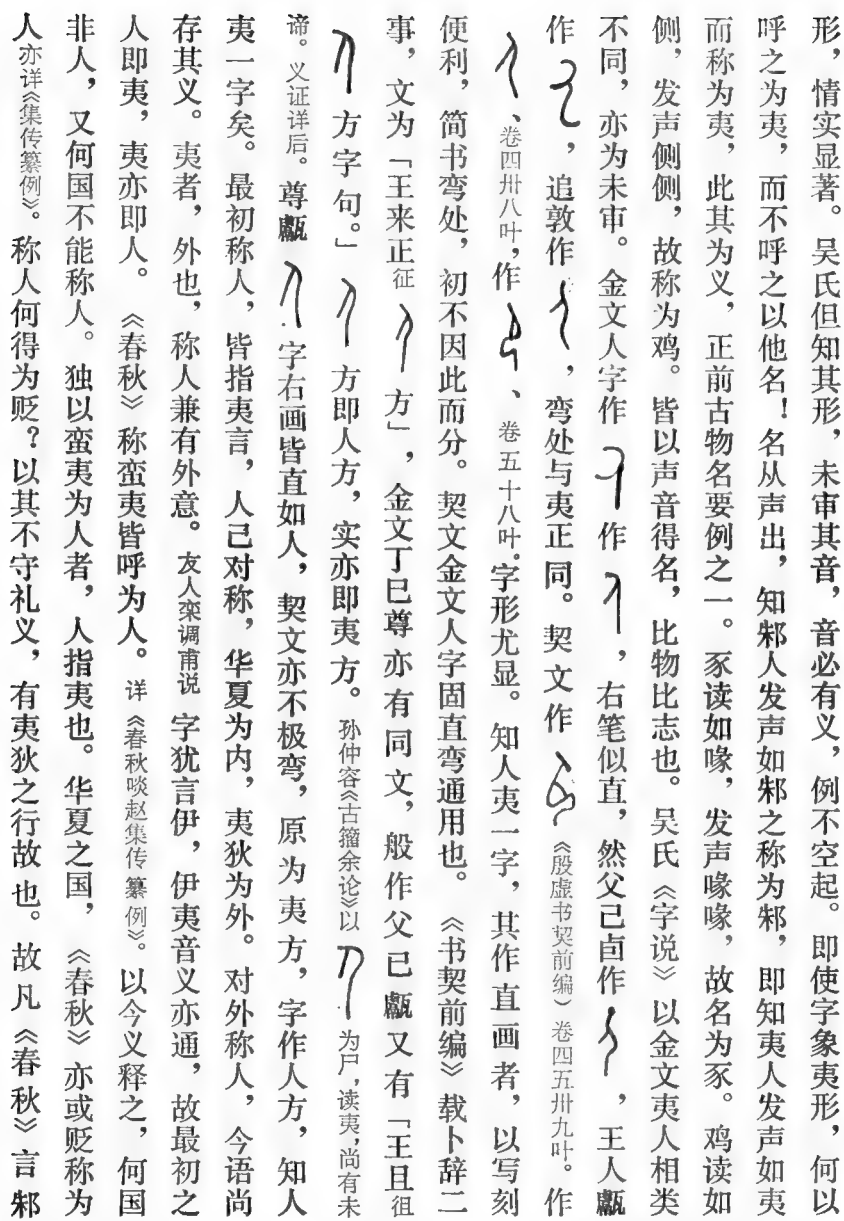 形，情实显著。吴氏但知其形，未审其音，音必有义，例不空起。即使字象夷形，何以
呼之为夷，而不呼之以他名！名从声出，知邾人发声如邾之称为邾，即知夷人发声如夷
而称为夷，此其为义，正前古物名要例之一。豕读如喙，发声喙喙，故名为豕。鸡读如
侧，发声侧侧，故称为鸡。皆以声音得名，比物比志也。吴氏《字说》以金文夷人相类
不同，亦为未审。金文人字作 作 ，右笔似直，然父己卣作 ，王人甗
作 ，追敦作 ，弯处与夷正同。契文作 《殷虚书契前编）卷四五卅九叶。作
、卷四卅八叶，作 、卷五十八叶。字形尤显。知人夷一字，其作直画者，以写刻
便利，简书弯处，初不因此而分。契文金文人字固直弯通用也。《书契前编》载卜辞二
事，文为「王来正征 方」，金文丁巳尊亦有同文，般作父已甗又有「王且徂
方字句。」 方即人方，实亦即夷方。孙仲容《古籀余论》以 为尸，读夷，尚有未
谛。义证详后。尊甗 字右画皆直如人，契文亦不极弯，原为夷方，字作人方，知人
夷一字矣。最初称人，皆指夷言，人己对称，华夏为内，夷狄为外。对外称人，今语尚
存其义。夷者，外也，称人兼有外意。友人栾调甫说 字犹言伊，伊夷音义亦通，故最初之
人即夷，夷亦即人。《春秋》称蛮夷皆呼为人。详《春秋啖赵集传纂例》。以今义释之，何国
非人，又何国不能称人。独以蛮夷为人者，人指夷也。华夏之国，《春秋》亦或贬称为
人亦详《集传纂例》。称人何得为贬？以其不守礼义，有夷狄之行故也。故凡《春秋》言邾